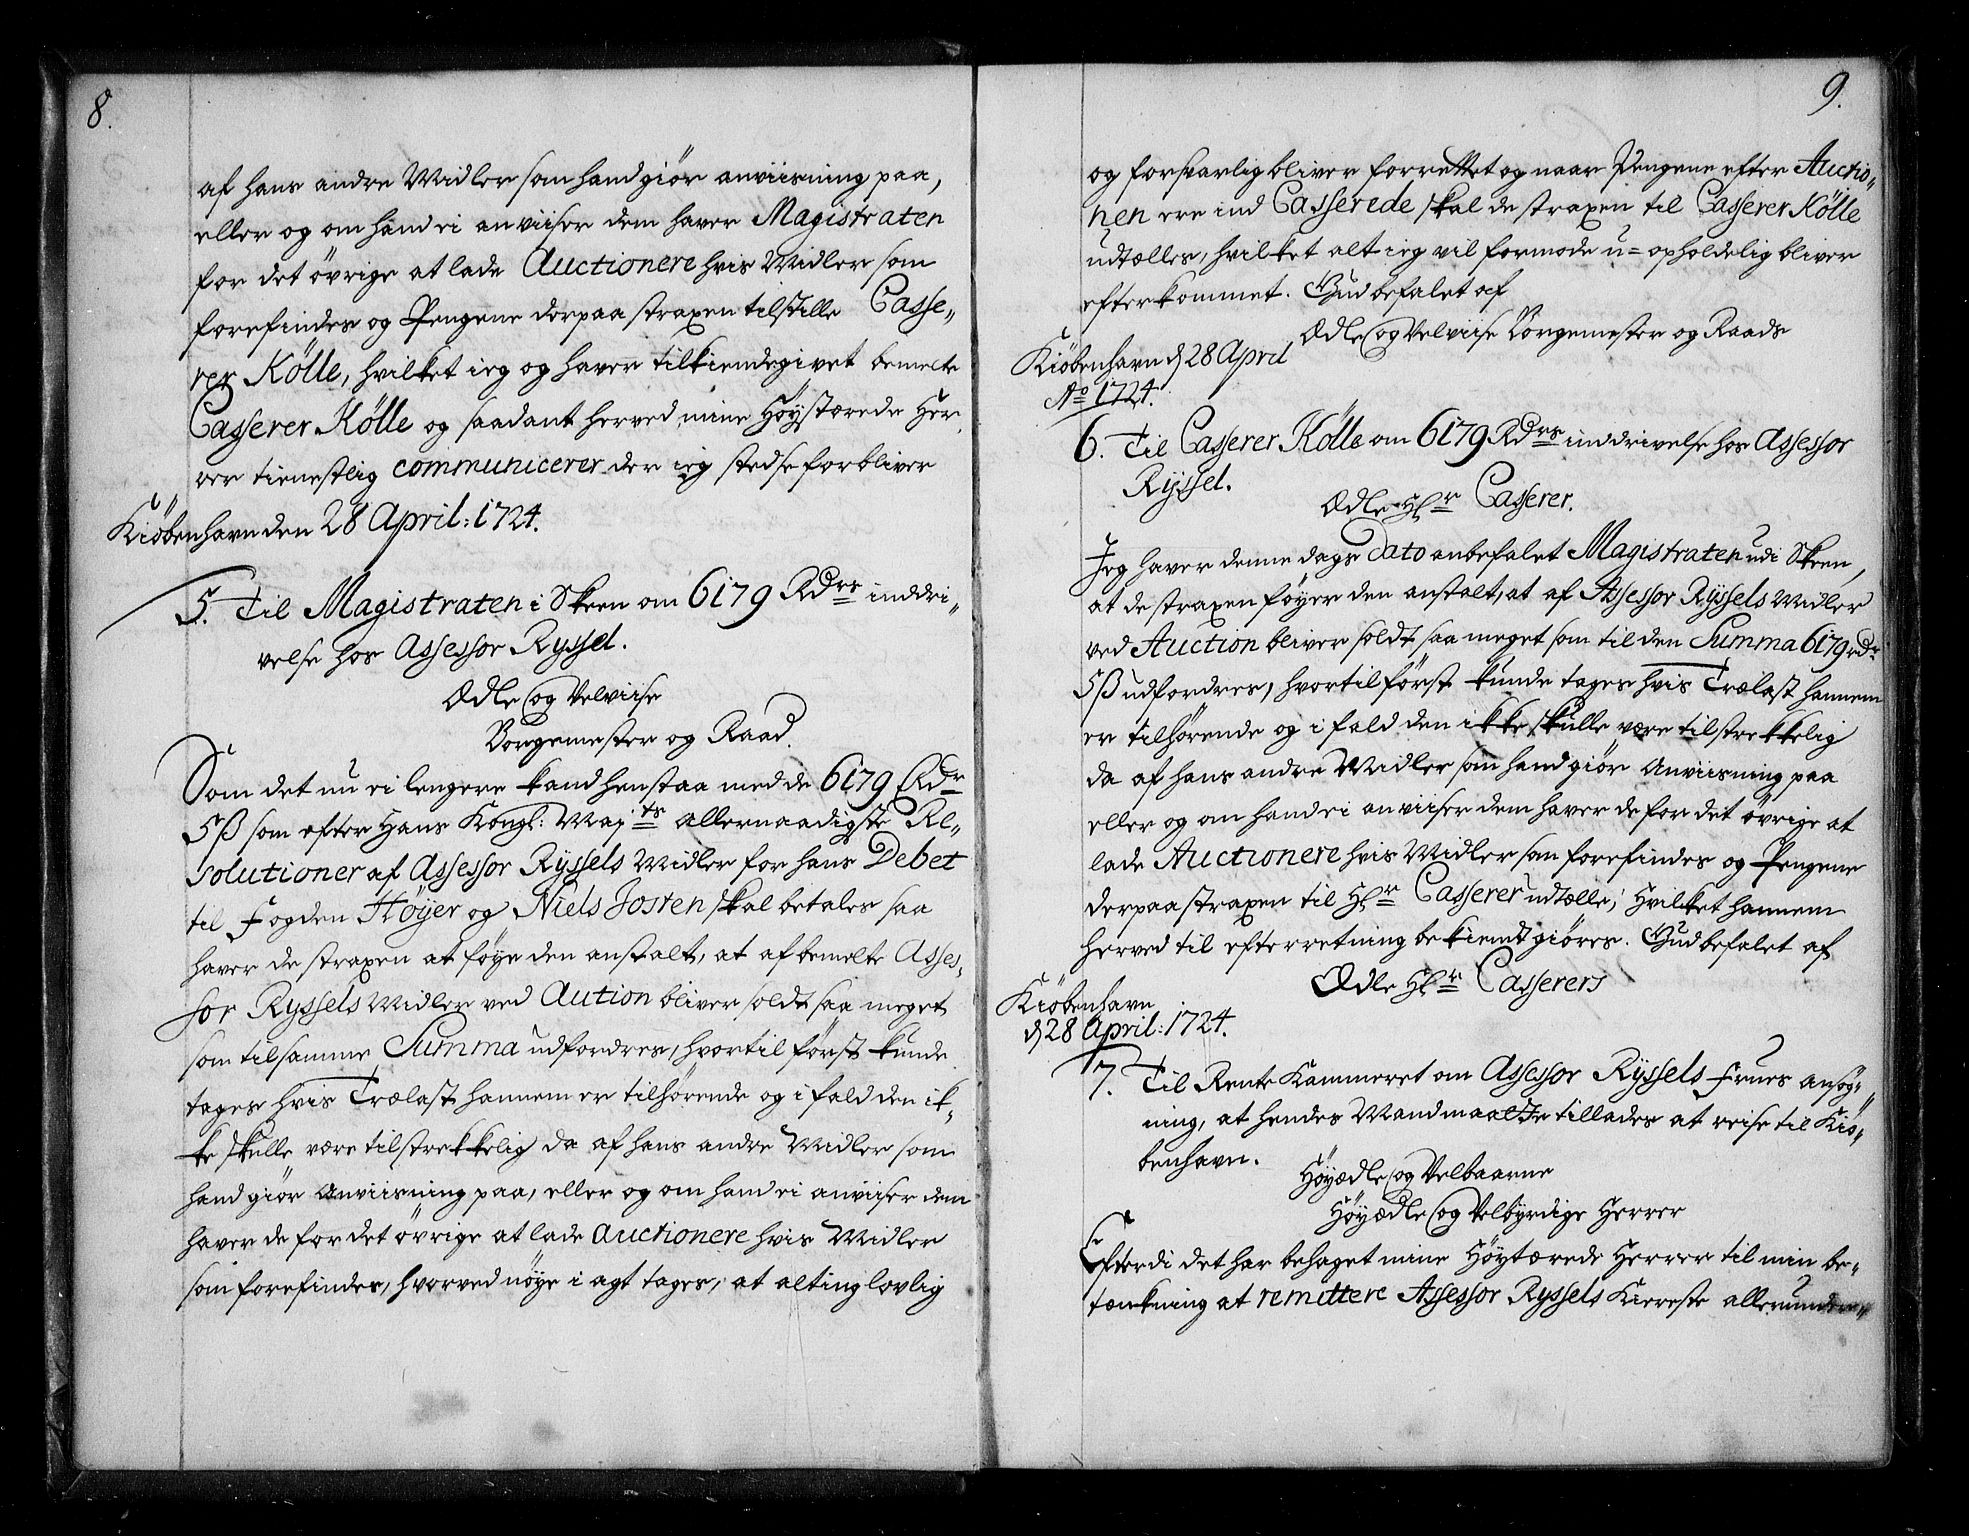 8.
af hans andre Midler som hand giör anviisning paa,
eller og om hand ei anviiser dem haver Magistraten
for det övrige at lade Auctionere hvis Midler som
forefindes og Pengene derpaa straxen tilstille Casse„
rer Kölle, hvilket ieg og haver tilkiendegivet bemelte
Casserer Kölle og saadant herved mine Höystærede Her„
rer tienestlig communicerer der ieg stedse forbliver
Kiöbenhavn den 28 April: 1724.
5. Til Magistraten i Skeen om 6179 Rdrs inddri„
velse hos Assessor Ryssel.
Ædle og Velviise
Borgemester og Raad.
Som det nu ei lengere kand henstaa med de 6179 Rdr
5 ß som efter Hans Kongl: May.ts allernaadigste Re„
solutioner af Assessor Ryssels Midler for hans Debet
til Fogden Höyer og Niels Josten skal betales saa
haver de straxen at föye den anstalt, at af bemelte Asses„
sor Ryssels Midler ved Aution bliver soldt saa meget
som til samme Summa udfordres, hvortil först kunde
tages hvis Trælast hannem er tilhörende og i fald den ik„
ke skulle være tilstrekkelig da af hans andre Midler som
hand giör Anviisning paa, eller og om hand ei anviiser dem
haver de for det övrige at lade Auctionere hvis Midler
som forefindes, hvorved nöye i agt tages, at alting lovlig
9.
og forsvarlig bliver forrettet og naar Pengene efter Auctio„
nen ere ind Casserede skal de straxen til Casserer Kölle
udtælles, hvilket alt ieg vil formode u=opholdelig bliver
efterkommet. Gud befalet af
Ædle og Velviise Borgemester og Raads
Kiöbenhavn d 28 April
Ao 1724.
6. Til Casserer Kölle om 6179 Rdrs inddrivelse hos Assessor
Ryssel.
Ædle Hr Casserer.
Jeg haver denne dags Dato anbefalet Magistraten udi Skeen,
at de straxen föyer den anstalt, at af Assessor Ryssels Midler
ved Auction bliver soldt saa meget som til den Summa 6179 rdr
5 ß udfordres, hvortil först kunde tages hvis Trælast hannem
er tilhörende og i fald den ikke skulle være tilstrekkelig
da af hans andre Midler som hand giör Anviisning paa
eller og om hand ei anviiser dem haver de for det övrige at
lade Auctionere hvis Midler som forefindes og Pengene
derpaa straxen til Hr Casserer udtælle; Hvilket hannem
herved til efterretning bekiendtgiöres. Gud befalet af
Ædle Hr Casserers
Kiöbenhavn
d 28 April: 1724.
7. Til Rente Kammeret om Assessor Ryssels Frues ansög„
ning, at hendes Mand maatte tillades at reise til Kiö„
benhavn.
Höyædle og Velbaarne
Höyædle og Velbyrdige Herrer
Efterdi det har behaget mine Höytærede Herrer til min be„
tænkning at remittere Assessor Ryssels Kiereste allerunder„